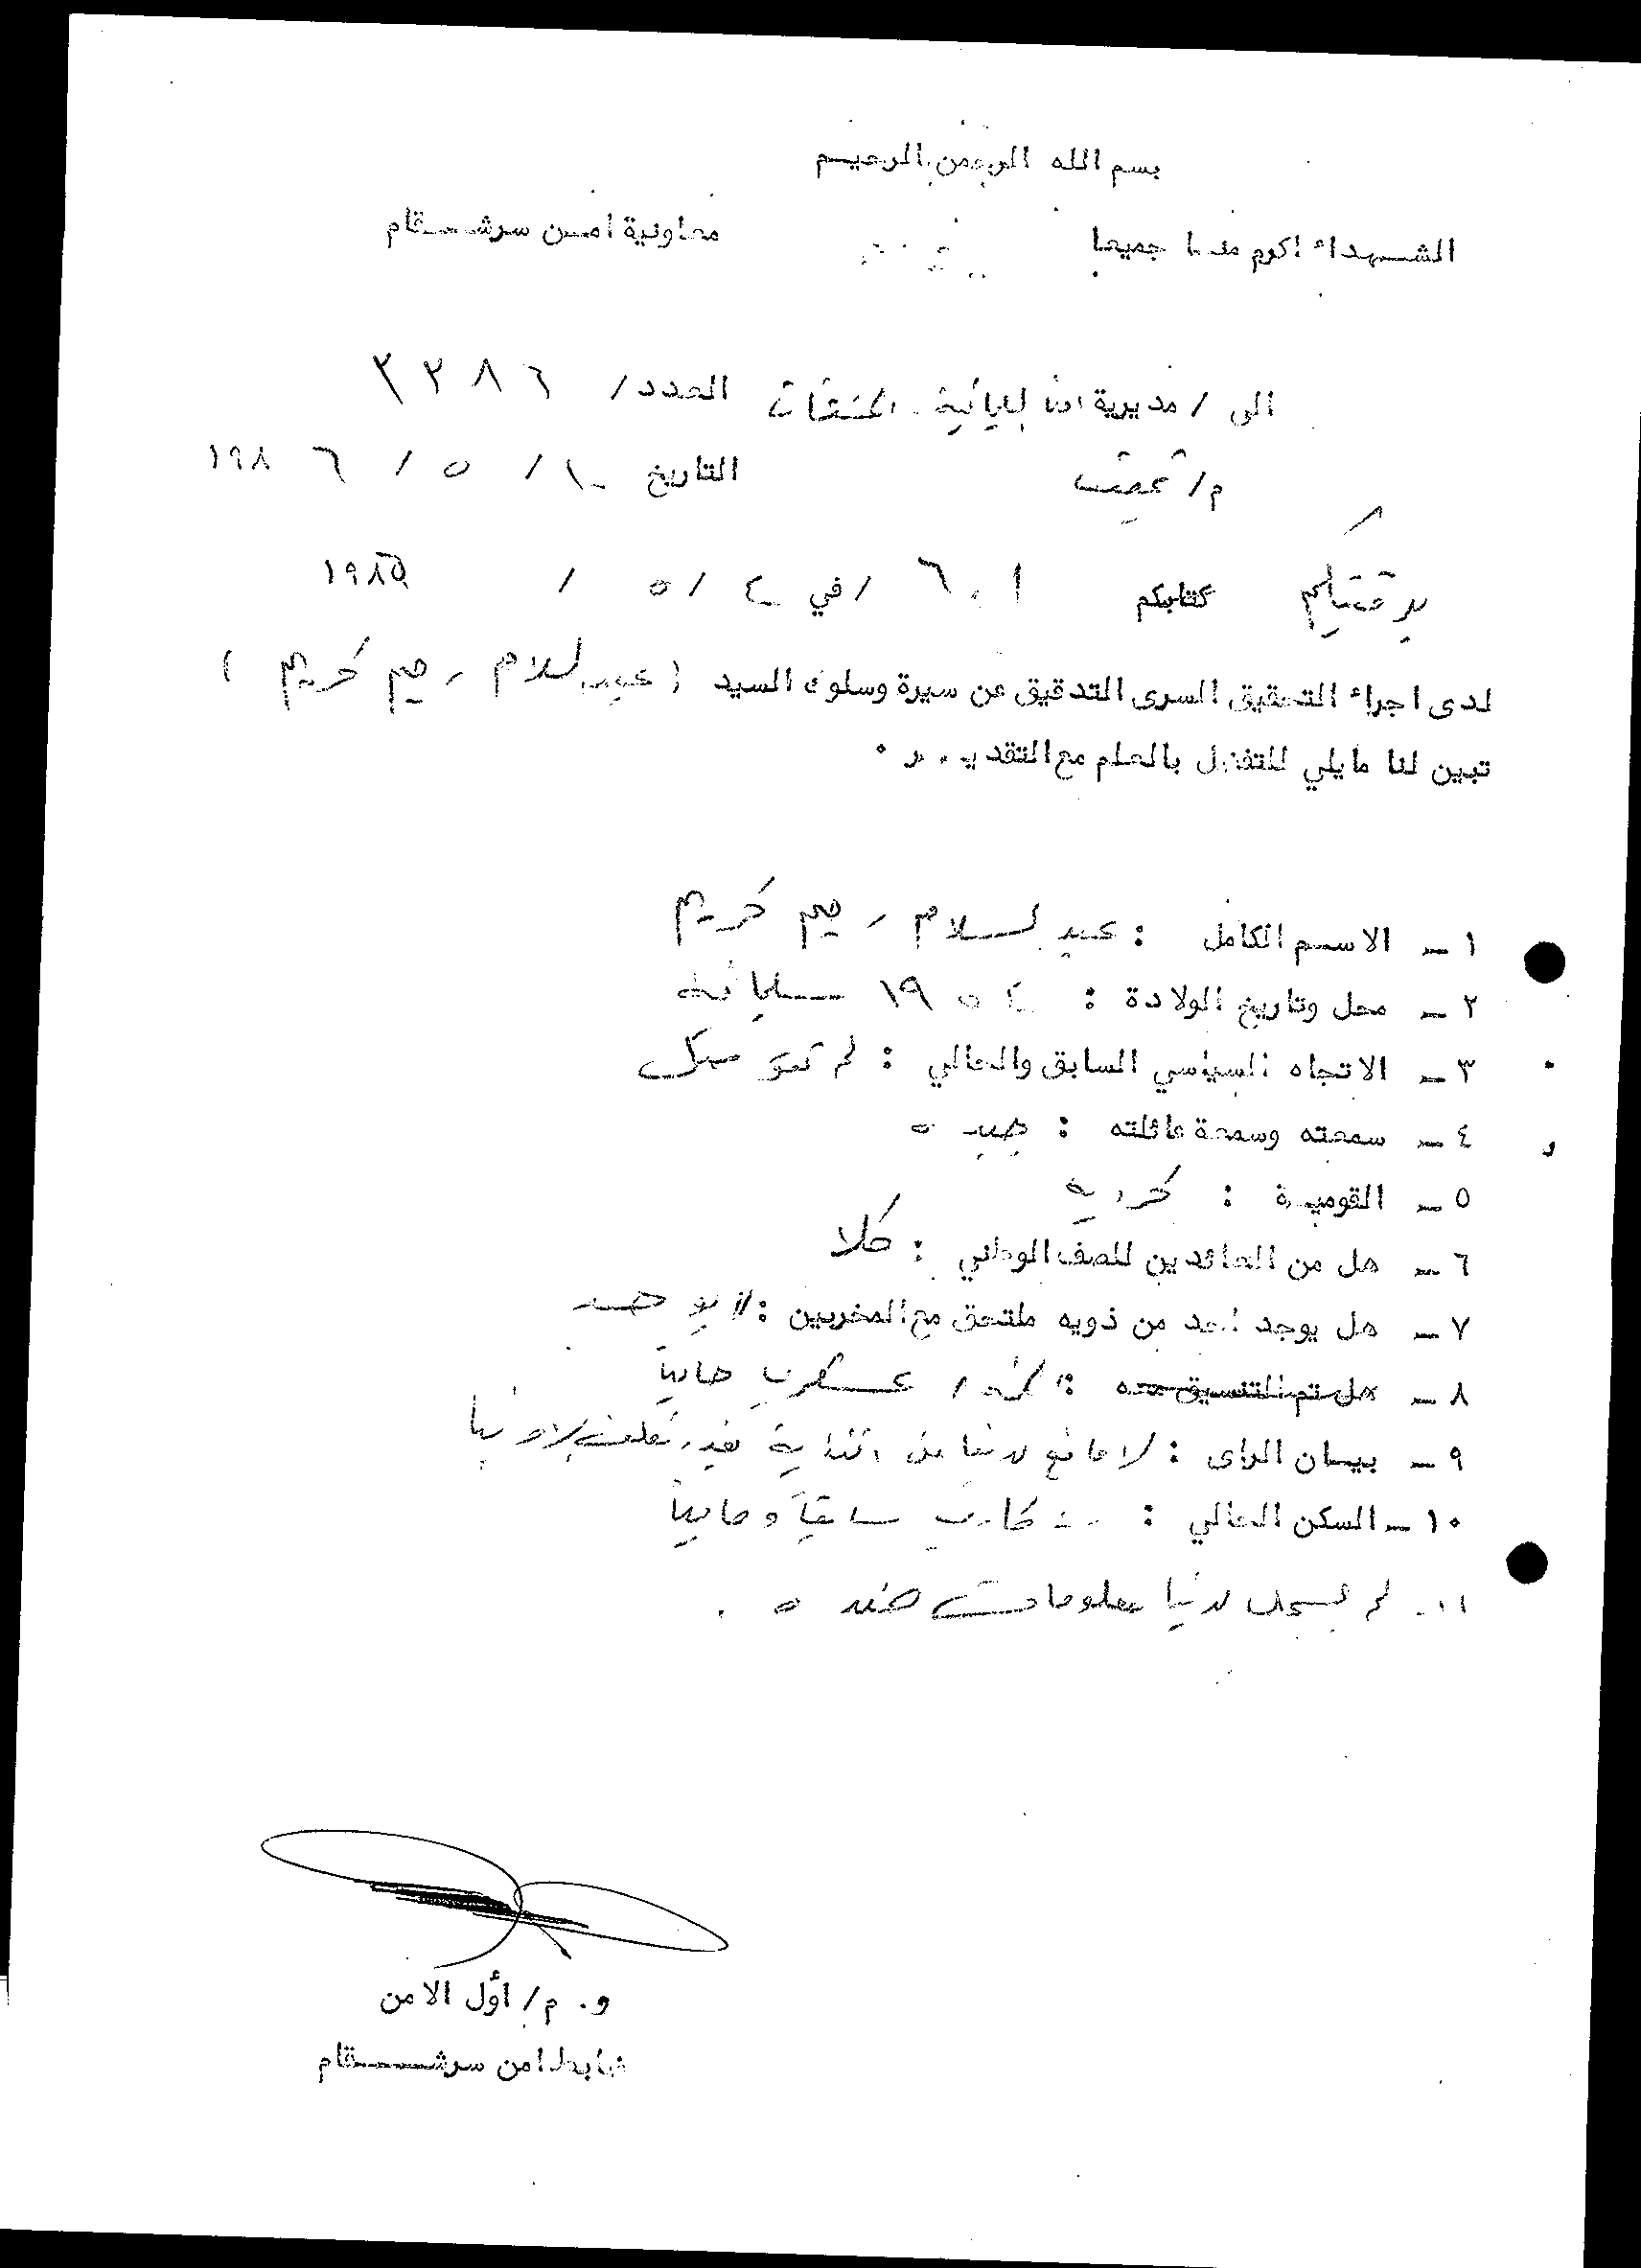 بسم الله الرحمن الرحيم
الشهداء اكرم منا جميعا
معاونية امن سرشقام
الى / مديرية امن السليمانية - المنشآت العدد / ٢٢٨٦
م / تحقيق التاريخ ١٠ / ٥ / ١٩٨٦
كتابكم ٦٠١ / في ٤ / ٥ / ١٩٨
لدى اجراء التحقيق السرى التدقيق عن سيرة وسلوك السيد ( عبدالسلام رحيم كريم )
تبين لنا مايلي للتفضل بالعلم مع التقدير ٠
١ - الاسم الكامل : عبدالسلام رحيم كريم
٢ - محل وتاريخ الولادة : ١٩٥٤ سليمانية
٣ - الاتجاه السياسي السابق والحالي : لم
٤ - سمعته وسمعة عائلته : جيده
٥ - القومية : كردية
٦ - هل من العائدين للصف الوطني : كلا
٧ - هل يوجد احد من ذويه ملتحق مع المخربين : لا يوجد
٨ - هل تم التنسيق معه : عسكري حاليا
٩ - بيان الراى : لا مانع لدينا من
١٠ - السكن الحالي : سابقا وحاليا
١١ - لم تسجل لدينا معلومات ضده
و. م / أول الامن
ضابط امن سرشقام